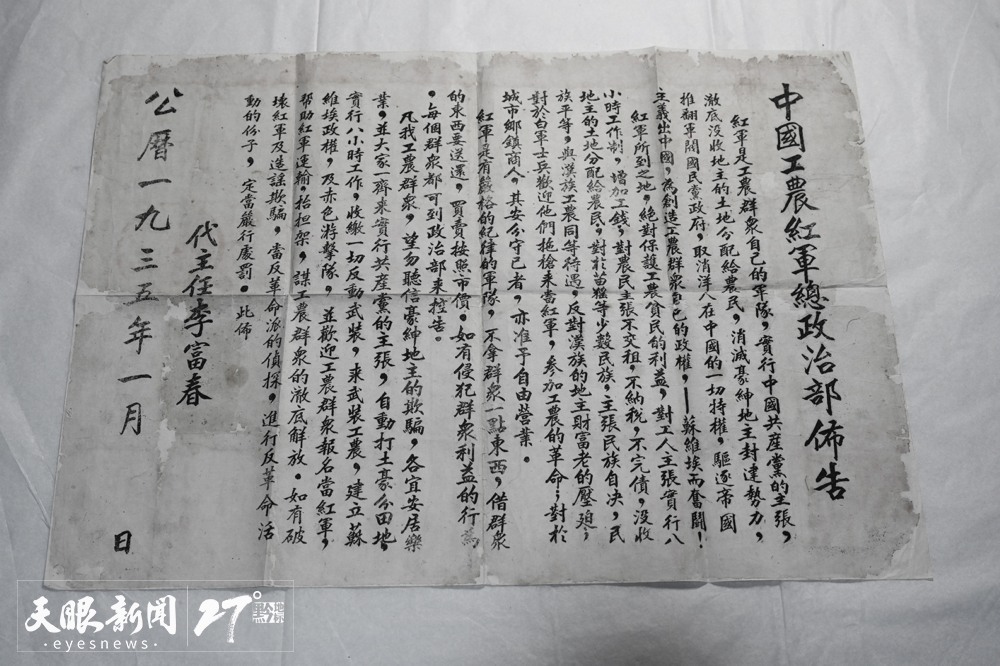 中國工農紅軍總政治部佈告
紅軍是工農群衆自己的軍隊，實行中國共產黨的主張，
澈底没收地主的土地分配給農民，消滅豪紳地主封建勢力，
推翻軍閥國民黨政府，取消洋人在中國的一切特權，驅逐帝國
主義出中國，為創造工農群衆自己的政權，——蘇維埃而奮鬪！
紅軍所到之地，絶對保護工農貧民的利益，對工人主張實行八
小時工作制，增加工錢，對農民主張不交租，不納税，不完債，没收
地主的土地分配給農民，對苗猺等少數民族，主張民族自决，民
族平等，與漢族工農同等待遇，反對漢族的地主財富老的壓迫，
對於白軍士兵歡迎他們拖槍來當紅軍，參加工農的革命；對於
城市鄉鎮商人，其安分守己者，亦准予自由營業。
紅軍是有嚴格的紀律的軍隊，不拿群衆一點東西，借群衆
的東西要送還，買賣按照市價。如有侵犯群衆利益的行為
，每個群衆都可到政治部來控告。
凡我工農群衆，望勿聽信豪紳地主的欺騙，各宜安居樂
業，並大家一齊來實行共產黨的主張，自動打土豪分田地，
實行八小時工作，收繳一切反動武裝，來武裝工農，建立蘇
維埃政權，及赤色游擊隊，並歡迎工農群衆報名當紅軍，
帮助紅軍運輸，抬担架，謀工農群衆的澈底解放。如有破
壞紅軍及造謡欺騙，當反革命派的偵探，進行反革命活
動的份子，定當嚴行處罰。此佈
代主任李富春
公曆一九三五年一月　日
天眼新闻 27°黔深
·eyesnews·